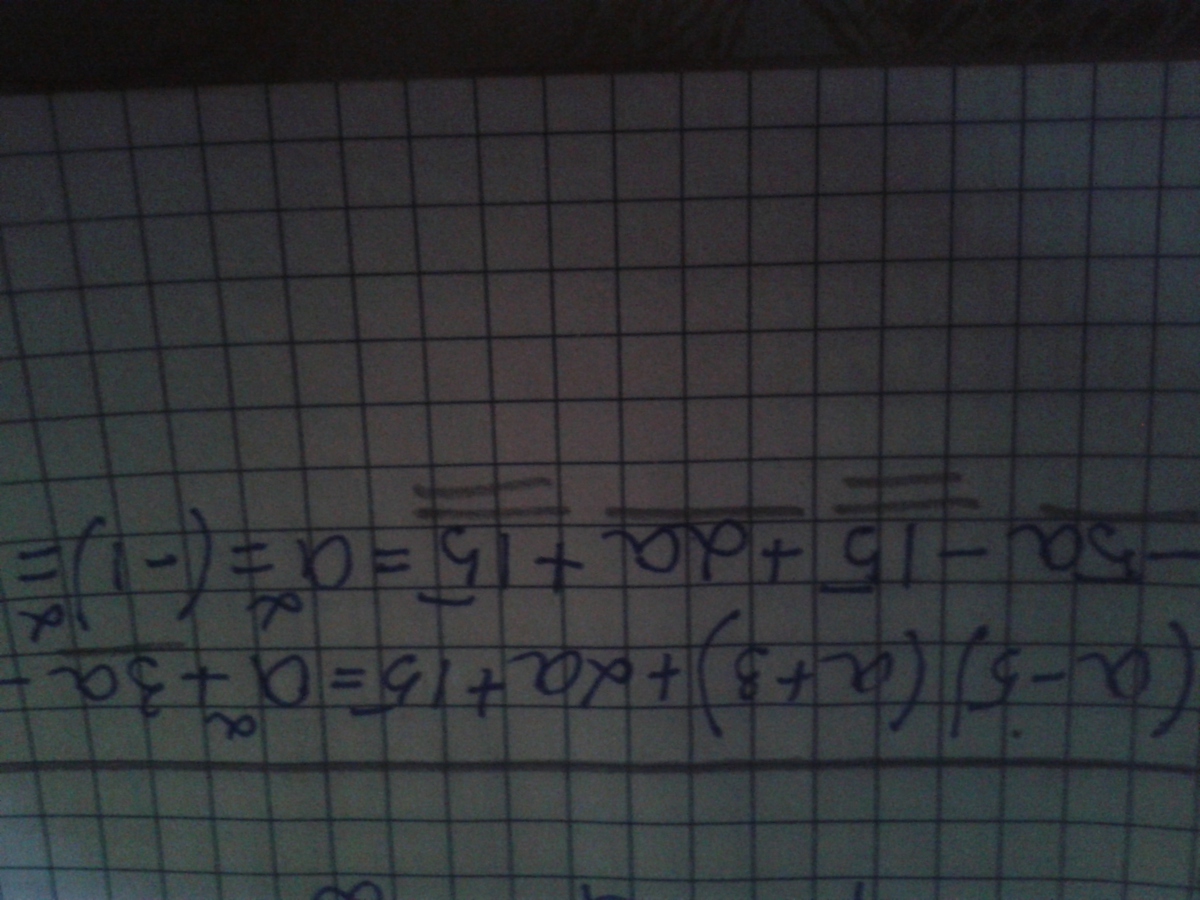 (a-5)(a+3)+2a+15=a²+3a-
-5a-15+2a+15=a²=(-1)²=